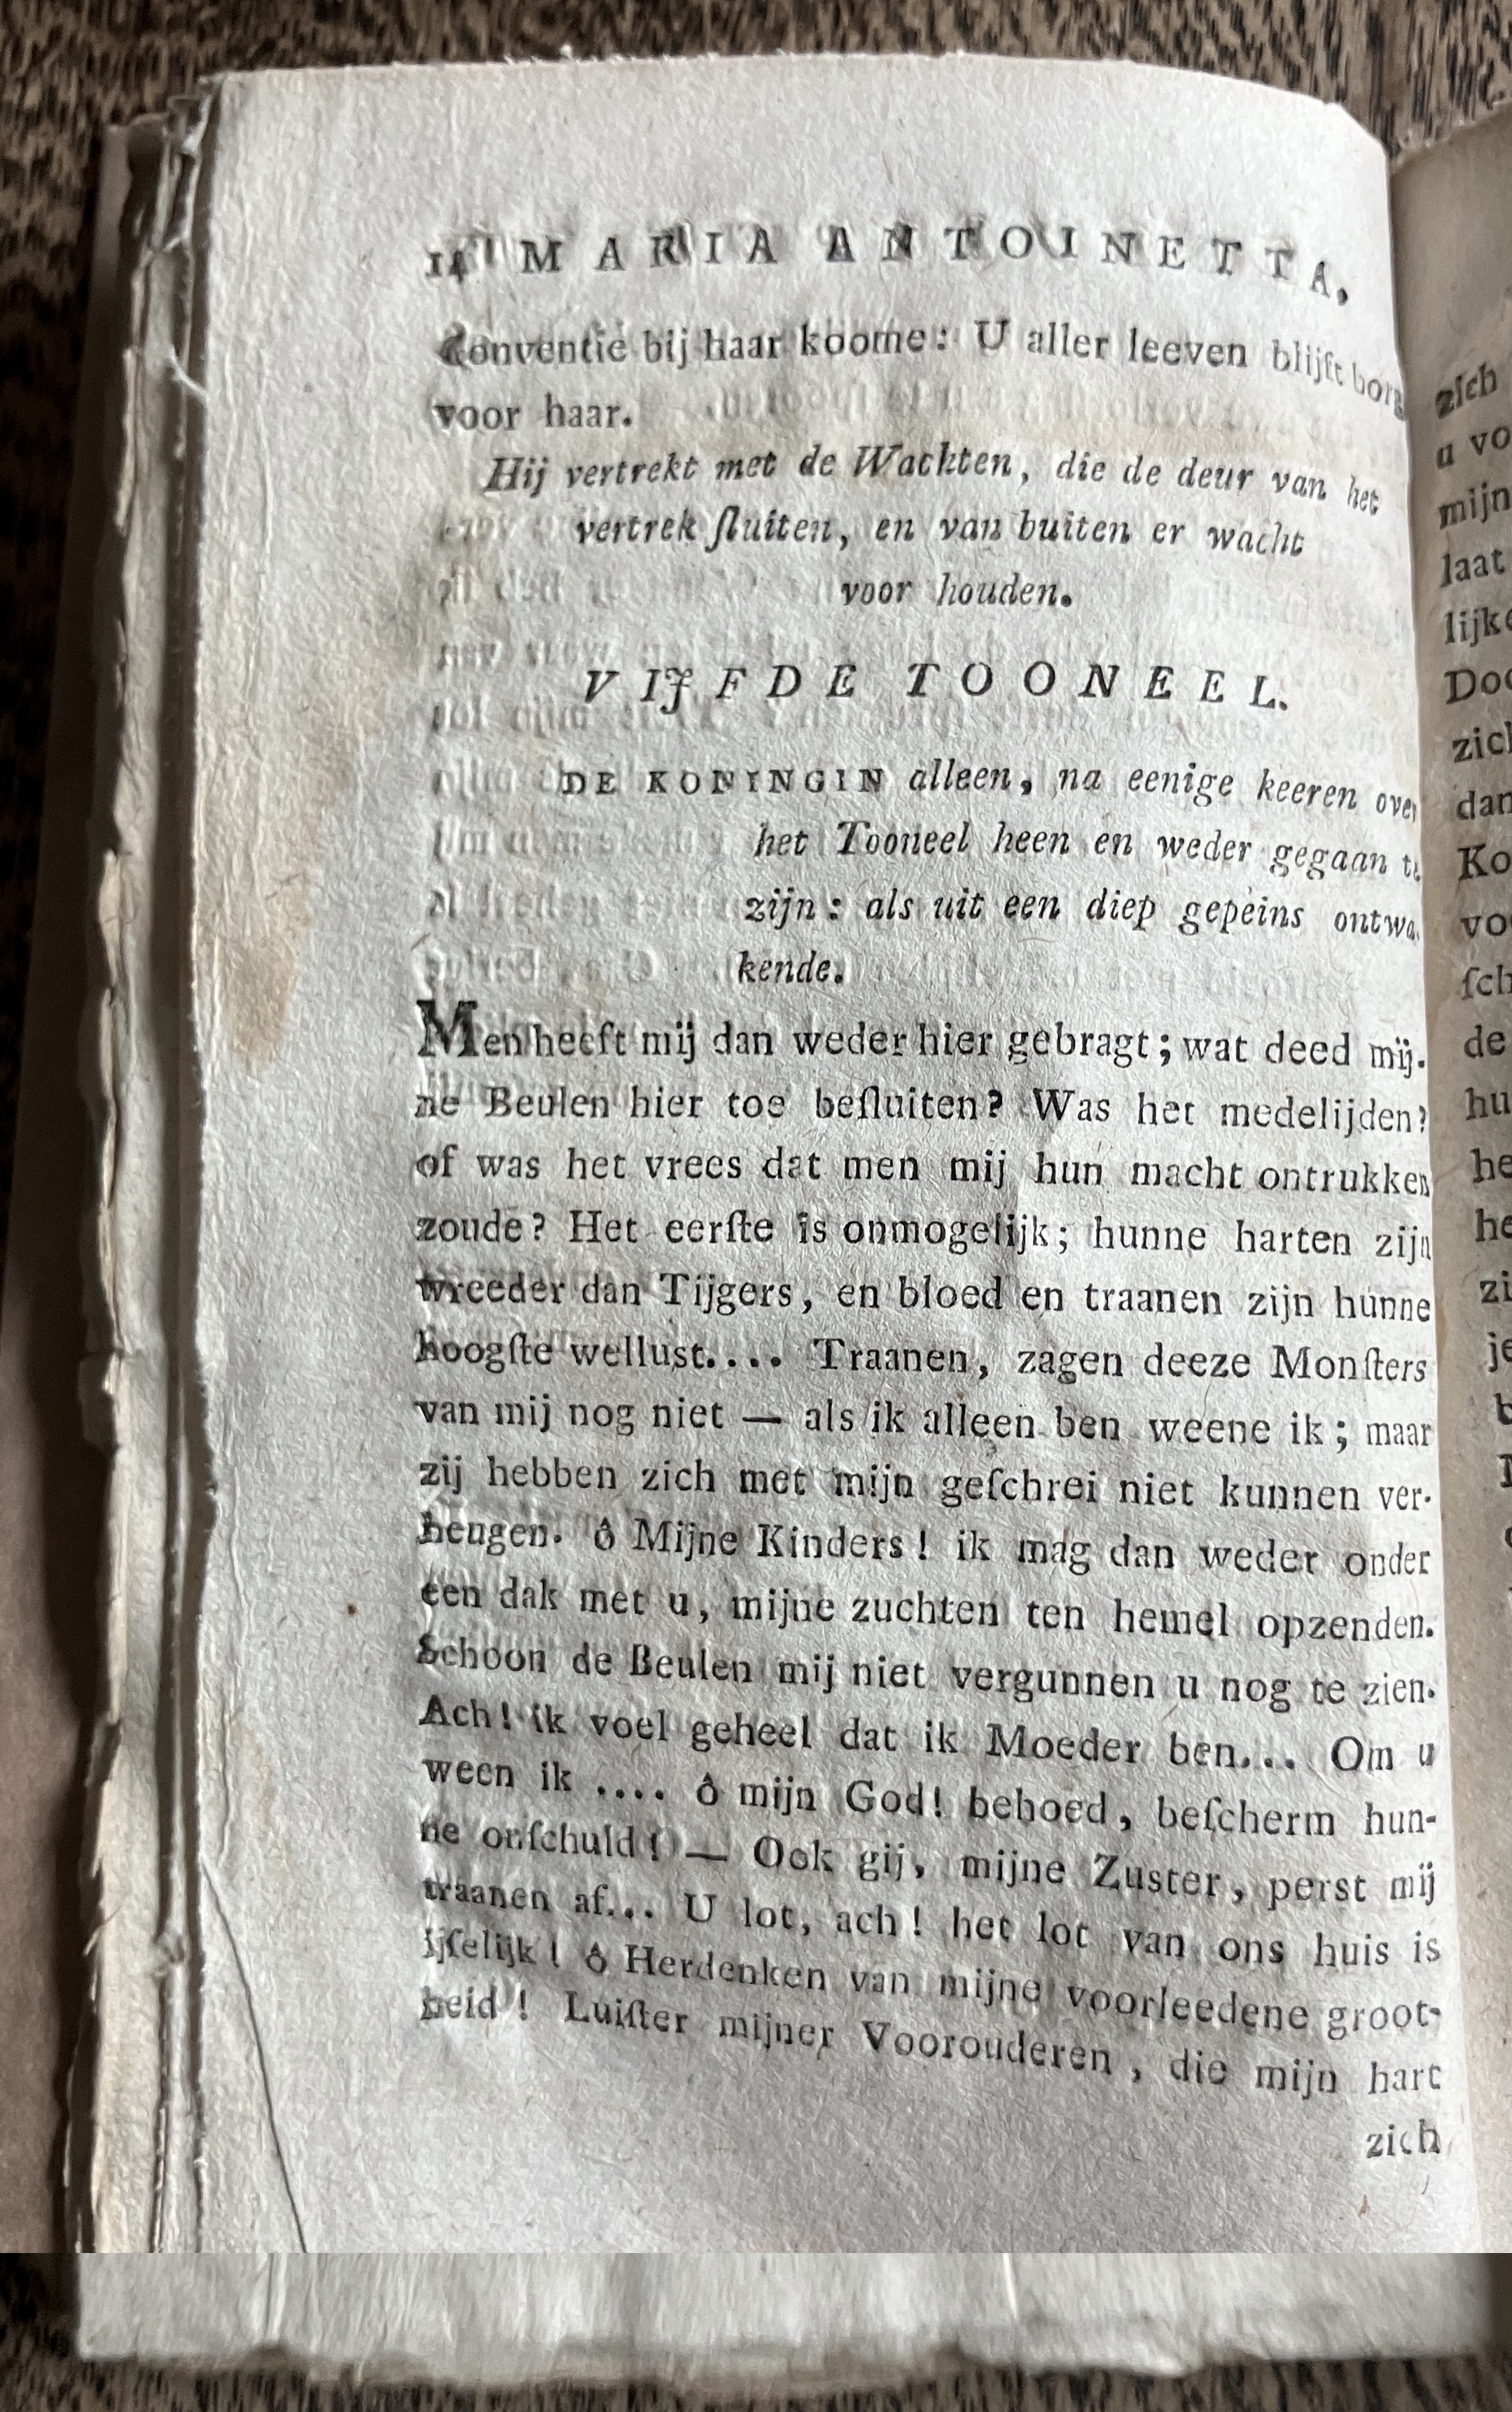 14 MARIA ANTOINETTA,
Conventie bij haar koome: U aller leeven blijft borg
voor haar.
Hij vertrekt met de Wachten, die de deur van het
vertrek ſluiten, en van buiten er wacht
voor houden.
VIJFDE TOONEEL.
DE KONINGIN alleen, na eenige keeren over
het Tooneel heen en weder gegaan te
zijn: als uit een diep gepeins ontwa
kende.
Men heeft mij dan weder hier gebragt; wat deed mij-
ne Beulen hier toe beſluiten? Was het medelijden?
of was het vrees dat men mij hun macht ontrukken
zoude? Het eerſte is onmogelijk; hunne harten zijn
wreeder dan Tijgers, en bloed en traanen zijn hunne
hoogſte wellust.... Traanen, zagen deeze Monſters
van mij nog niet — als ik alleen ben weene ik; maar
zij hebben zich met mijn geſchrei niet kunnen ver-
heugen. ô Mijne Kinders! ik mag dan weder onder
een dak met u, mijne zuchten ten hemel opzenden.
Schoon de Beulen mij niet vergunnen u nog te zien.
Ach! ik voel geheel dat ik Moeder ben... Om u
ween ik .... ô mijn God! behoed, beſcherm hun-
ne onſchuld! — Ook gij, mijne Zuster, perst mij
traanen af... U lot, ach! het lot van ons huis is
ijſelijk! ô Herdenken van mijne voorleedene groot-
heid! Luiſter mijner Voorouderen, die mijn hart
zich
zich
u vo
mijn
laat
lijke
Doo
zich
dan
Ko
voo
ſch
de
hu
he
he
zi
je